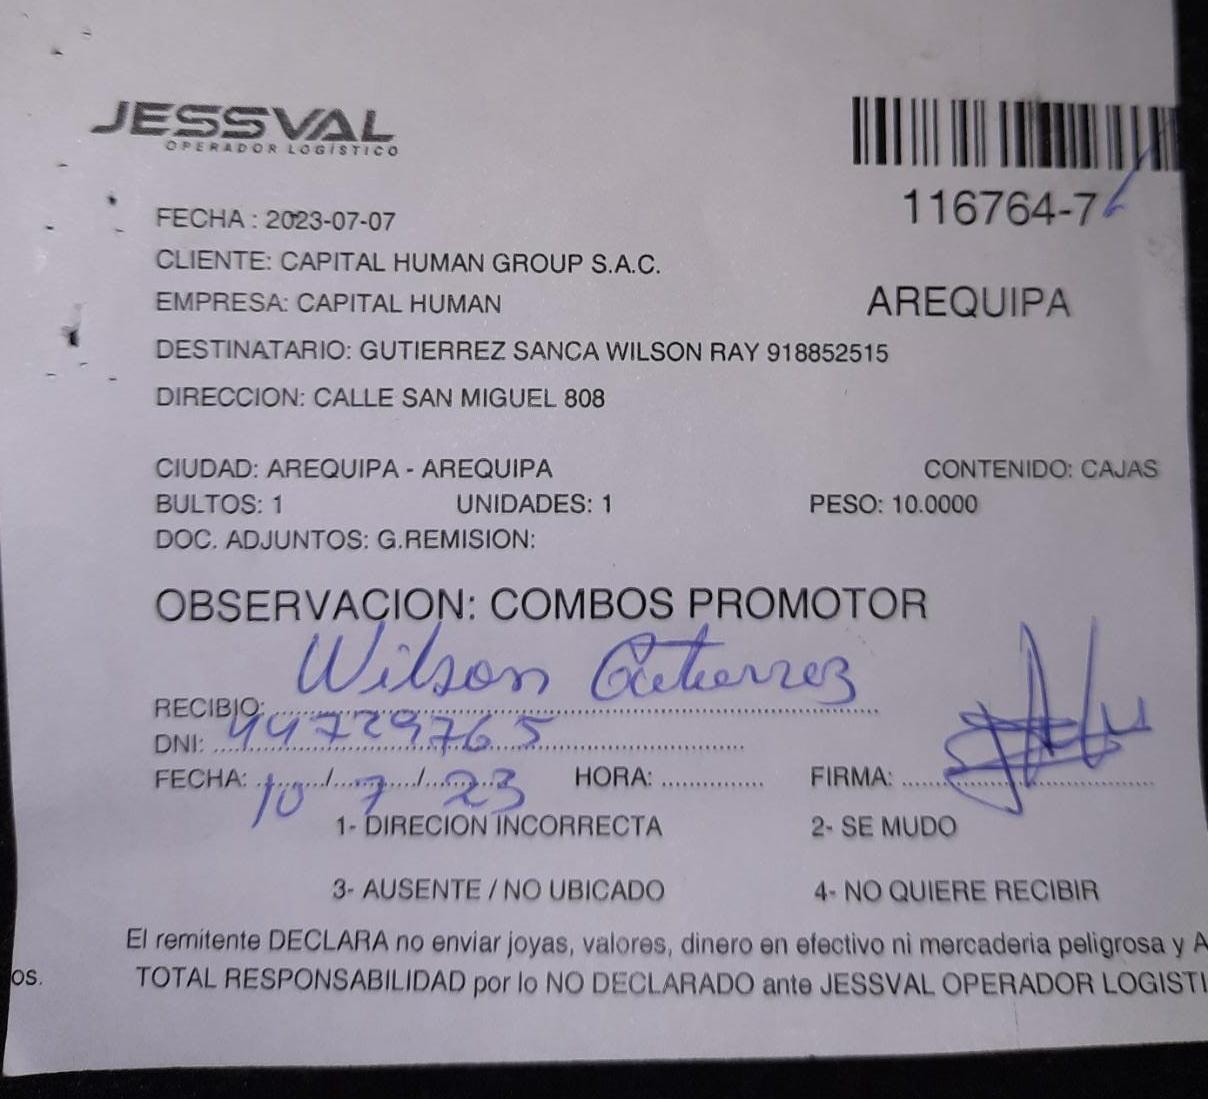 JESSVAL
OPERADOR LOGÍSTICO
116764-7
FECHA : 2023-07-07
CLIENTE: CAPITAL HUMAN GROUP S.A.C.
EMPRESA: CAPITAL HUMAN
AREQUIPA
DESTINATARIO: GUTIERREZ SANCA WILSON RAY 918852515
DIRECCION: CALLE SAN MIGUEL 808
CIUDAD: AREQUIPA - AREQUIPA CONTENIDO: CAJAS
BULTOS: 1 UNIDADES: 1 PESO: 10.0000
DOC. ADJUNTOS: G.REMISION:
OBSERVACION: COMBOS PROMOTOR
RECIBIO: Wilson Gutierrez
DNI: 44729765
FECHA: 10/7/23 HORA: FIRMA:
1- DIRECION INCORRECTA 2- SE MUDO
3- AUSENTE / NO UBICADO 4- NO QUIERE RECIBIR
El remitente DECLARA no enviar joyas, valores, dinero en efectivo ni mercaderia peligrosa y A
os. TOTAL RESPONSABILIDAD por lo NO DECLARADO ante JESSVAL OPERADOR LOGISTI